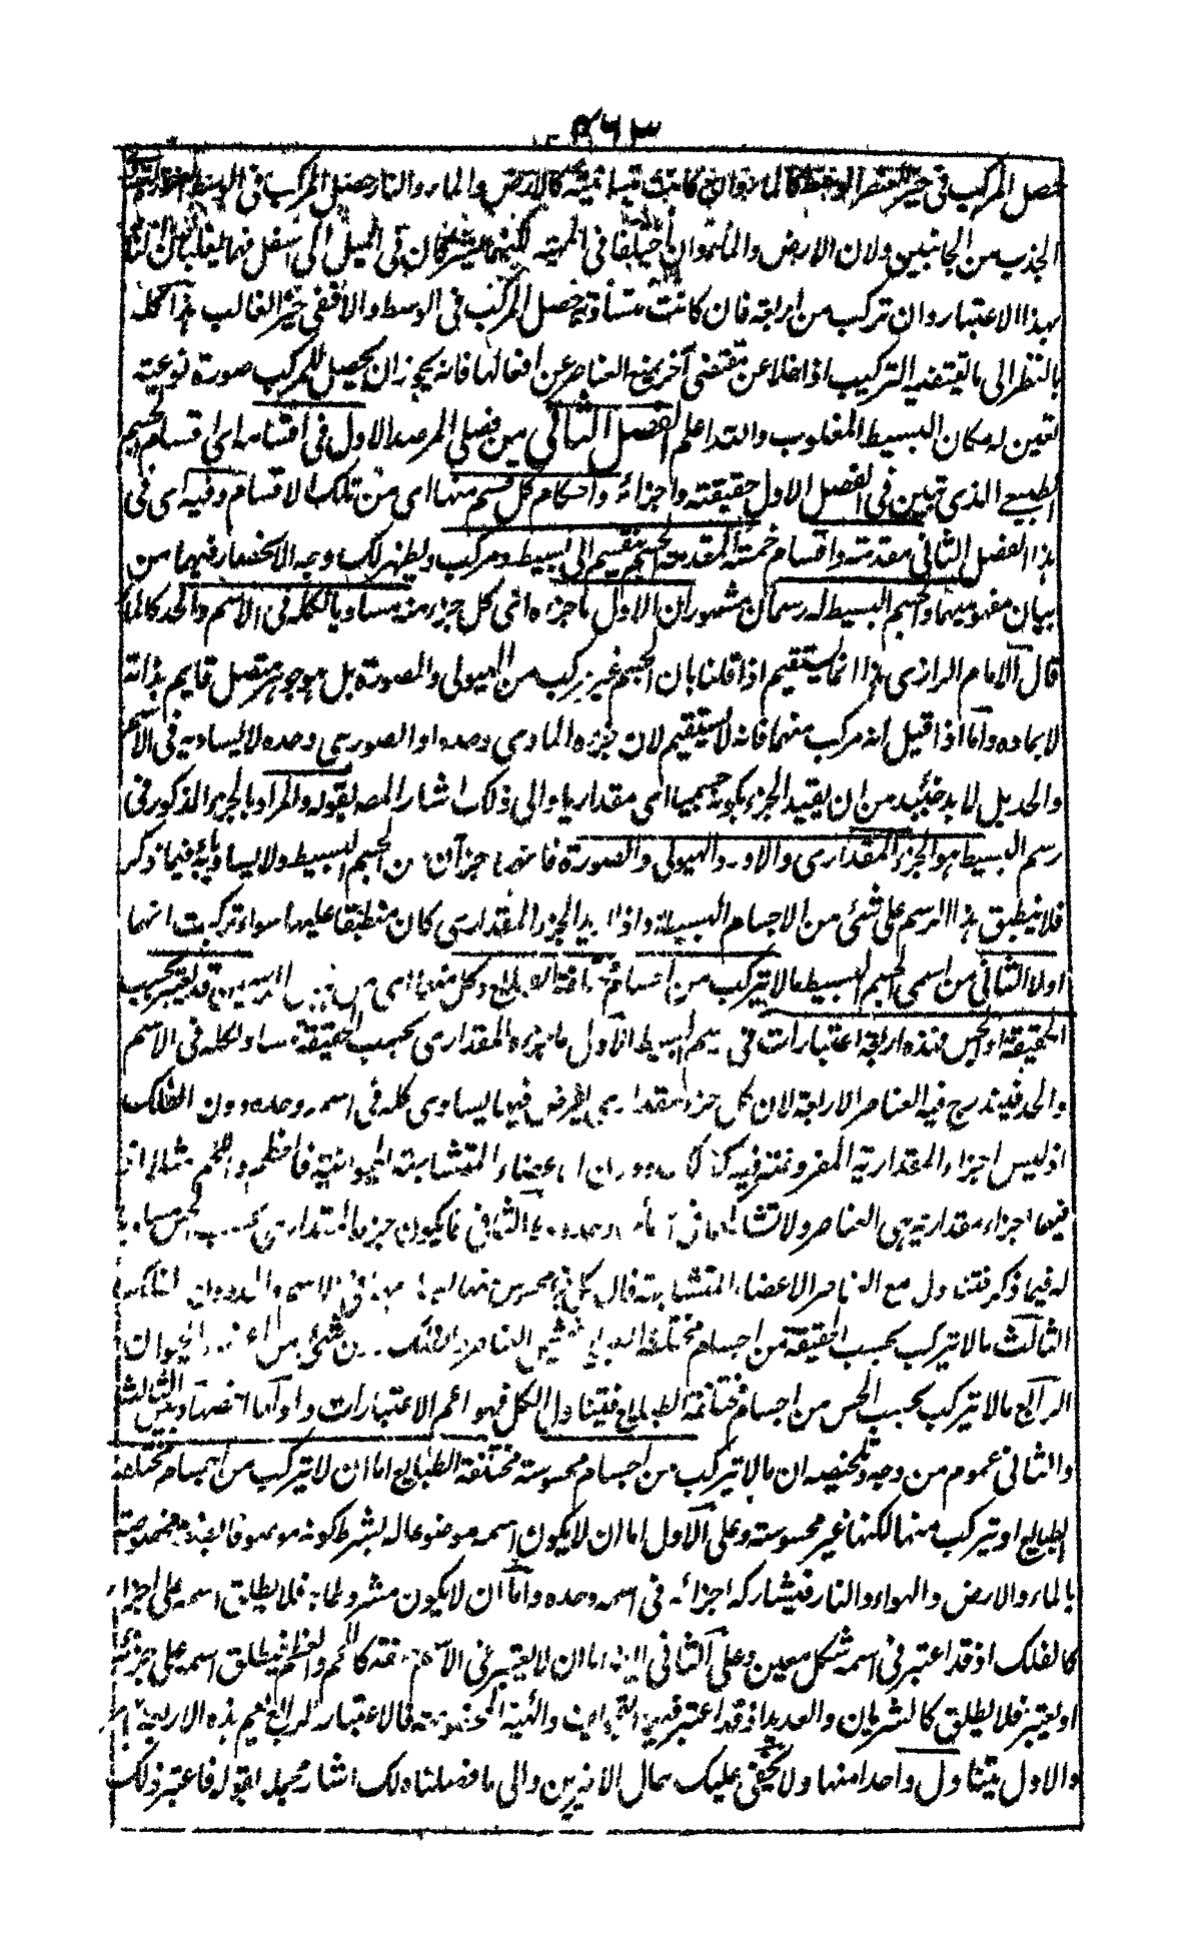 ٥٦٣
حصل المركب فى حيز العنصر الوسط كالماء والا فان كانت متباينة كالارض والماء والنار حصل المركب فى الوسط
الجذب من الجانبين ولان الارض والماء وان اختلفا فى المهية لكنهما يشتركان فى الميل الى اسفل فهما يغلبان النار
بهذا الاعتبار وان تركب من اربعة فان كانت متساوية حصل المركب فى الوسط والا ففى حيز الغالب هذا كله
بالنظر الى ما يقتضيه التركيب اذا خلا عن مقتضى آخر يمنع العناصر عن افعالها فانه يجوز ان يحصل للمركب صورة نوعية
تعين له مكان البسيط المغلوب والله اعلم الفصل الثانى من فصلى المرصد الاول فى اقسامه اى اقسام الجسم
الطبيعى الذى تبين فى الفصل الاول حقيقته واجزائه واحكام كل قسم منها اى من تلك الاقسام وفيه اى فى
هذا الفصل الثانى مقدمة واقسام خمسة المقدمة الجسم ينقسم الى بسيط ومركب وليظهر لك وجه الانحصار فيهما من
بيان مفهوميهما والجسم البسيط له رسمان مشهوران الاول ما جزءه اى كل جزء منه مساو بالكله فى الاسم والحد كالماء
قال الامام الرازى هذا انما يستقيم اذا قلنا بان الجسم غير مركب من الهيولى والصورة بل هو جوهر متصل قايم بذاته
لا بمادة واما اذا قيل انه مركب منهما فانه لا يستقيم لان جزءه المادى وحده او الصورى وحده لا يساويه فى الاسم
والحد بل لا بد حينئذ من ان يقيد الجزء بكونه جسميا اى مقداريا والى ذلك اشار المصه بقوله والمراد بالجزء المذكور فى
رسم البسيط هو الجزء المقدارى والا ورد الهيولى والصورة فانهما جزآن من الجسم البسيط ولا يساويانه فيما ذكر
فلا ينطبق هذا الرسم على شئ من الاجسام البسيطة واذا اريد الجزء المقدارى كان منطبقا عليها سواء تركبت منها
اولا الثانى من اسمى الجسم البسيط ما لا يتركب من اجسام مختلفة الطبايع وكل منهما اى من الرسمين قد يعتبر بحسب
الحقيقة او الحس فهذه اربعة اعتبارات فى رسم البسيط الاول ما جزءه المقدارى بحسب الحقيقة مساو لكله فى الاسم
والحد فيندرج فيه العناصر الاربعة لان كل جزء مقدارى يفرض فيها يساوى كله فى اسمه وحده دون الفلك
اذ ليس اجزاء المقدارية المفروضة فيه كذلك ودون الاعضاء المتشابهة الحيوانية فالعظم واللحم مثلا اذ
فيهما اجزاء مقدارية هى العناصر ولا تشاركهما فى اسمه وحده الثانى ما يكون جزءه المقدارى بحسب الحس مساويا
له فيما ذكر فتناول مع العناصر الاعضاء المتشابهة فان كل جزء محسوس منها
الثالث ما لا يتركب بحسب الحقيقة من اجسام مختلفة الطبايع فيشمل العناصر والفلك دون شئ من اعضاء الحيوان
الرابع ما لا يتركب بحسب الحس من اجسام مختلفة الطبايع فيتناول الكل فهو اعم الاعتبارات واولها اخصها وبين الثالث
والثانى عموم من وجه وتلخيصه ان ما لا يتركب من اجسام محسوسة مختلفة الطبايع اما ان لا يتركب من اجسام مختلفة
الطبايع او يتركب منها لكنها غير محسوسة وعلى الاول اما ان لا يكون اسمه موضوعا له بشرط كونه موصوفا بصفة مخصوصة
بالماء والارض والهواء والنار فيشاركه اجزائه فى اسمه وحده واما ان لا يكون مشروطا به فلا يطلق اسمه على اجزاء
كالفلك اذ قد اعتبر فى اسمه شكل معين وعلى الثانى ايضا اما ان لا يعتبر فى الاسم صفة كاللحم والعظم فيطلق اسمه على جزء
او يعتبر فلا يطلق كالشريان والوريد اذ قد اعتبر فيه التجويف والهيئة المخصوصة فالاعتبار الرابع يعم هذه الاربعة
والاول يتناول واحدا منها ولا يخفى عليك حال الاخيرين والى ما فصلناه لك اشار مجملا بقوله فاعتبر ذلك